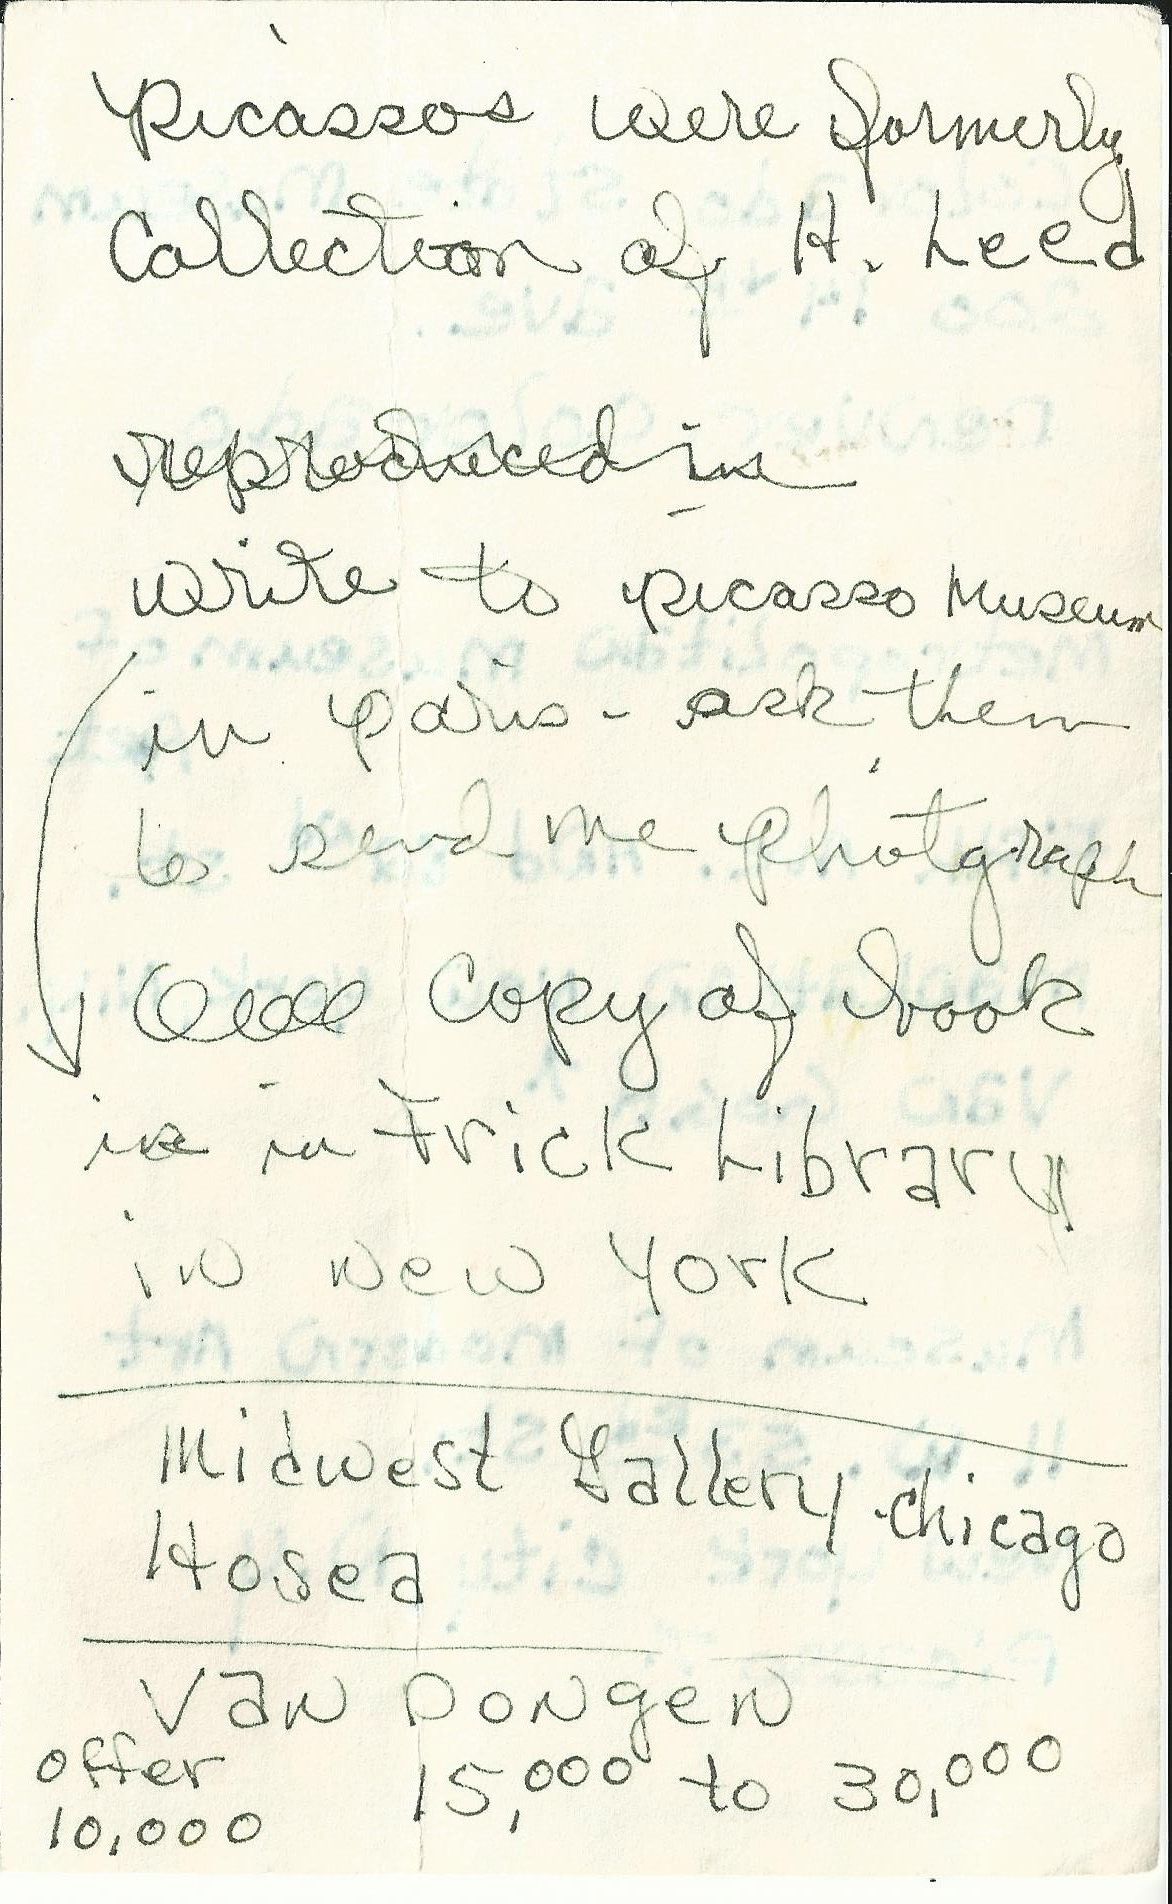 Picassos were formerly
Collection of H. Leed
reproduced in
write to Picasso Museum
in Paris - ask them
to send me photgraph
copy of book
is in Frick Library
in New York
Midwest Gallery-Chicago
Hosea
Van Dongen
offer 15,000 to 30,000
10,000